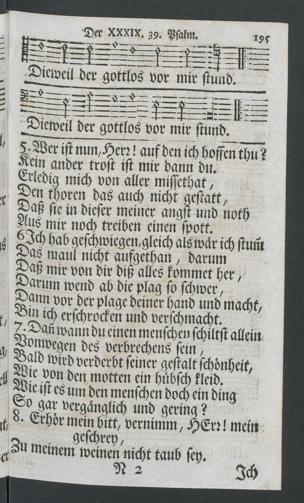 Der XXXIX. 39. Psalm. 195
Dieweil der gottlos vor mir stund.
Dieweil der gottlos vor mir stund.
5. Wer ist nun, HErr! auf den ich hoffen thu?
Kein ander trost ist mir dann du.
Erledig mich von aller missethat,
Den thoren das auch nicht gestatt,
Daß sie in dieser meiner angst und noth
Aus mir noch treiben einen spott.
6 Ich hab geschwiegen, gleich als wär ich stum̃
Das maul nicht aufgethan, darum
Daß mir von dir diß alles kommet her,
Darum wend ab die plag so schwer,
Dann vor der plage deiner hand und macht,
Bin ich erschrocken und verschmacht.
7. Dañ wann du einen menschen schiltst allein
Vonwegen des verbrechens sein,
Bald wird verderbt seiner gestalt schönheit,
Wie von den motten ein hübsch kleid.
Wie ist es um den menschen doch ein ding
So gar vergänglich und gering?
8. Erhör mein bitt, vernimm, HErr! mein
geschrey,
Zu meinem weinen nicht taub sey.
N 2 Ich